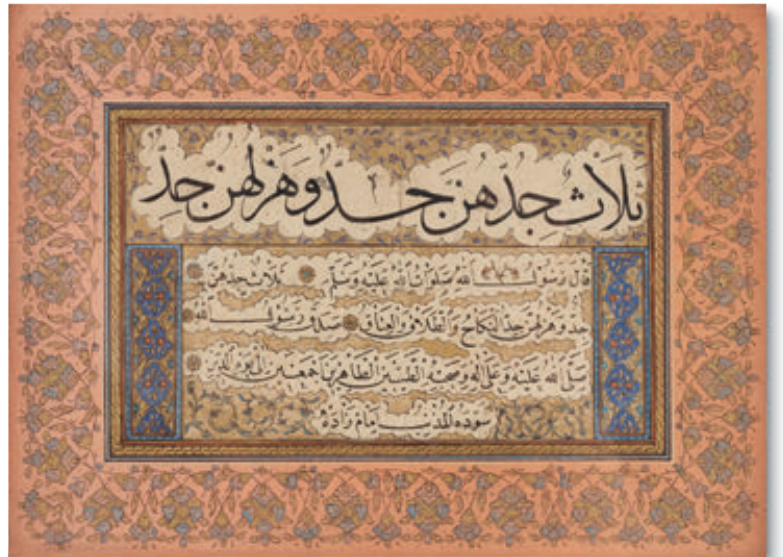 ثَلَاثٌ جِدُّهُنَّ جِدٌّ وَهَزْلُهُنَّ جِدٌّ
قال رسول الله صلوات الله عليه وسلم ثلاث جدهن
جد وهزلهن جد النكاح والطلاق والعتاق صدق رسول الله
صلى الله عليه وعلى اله وصحبه الطيبين الطاهرين اجمعين الى يوم الدين
سوده المذنب امام زاده